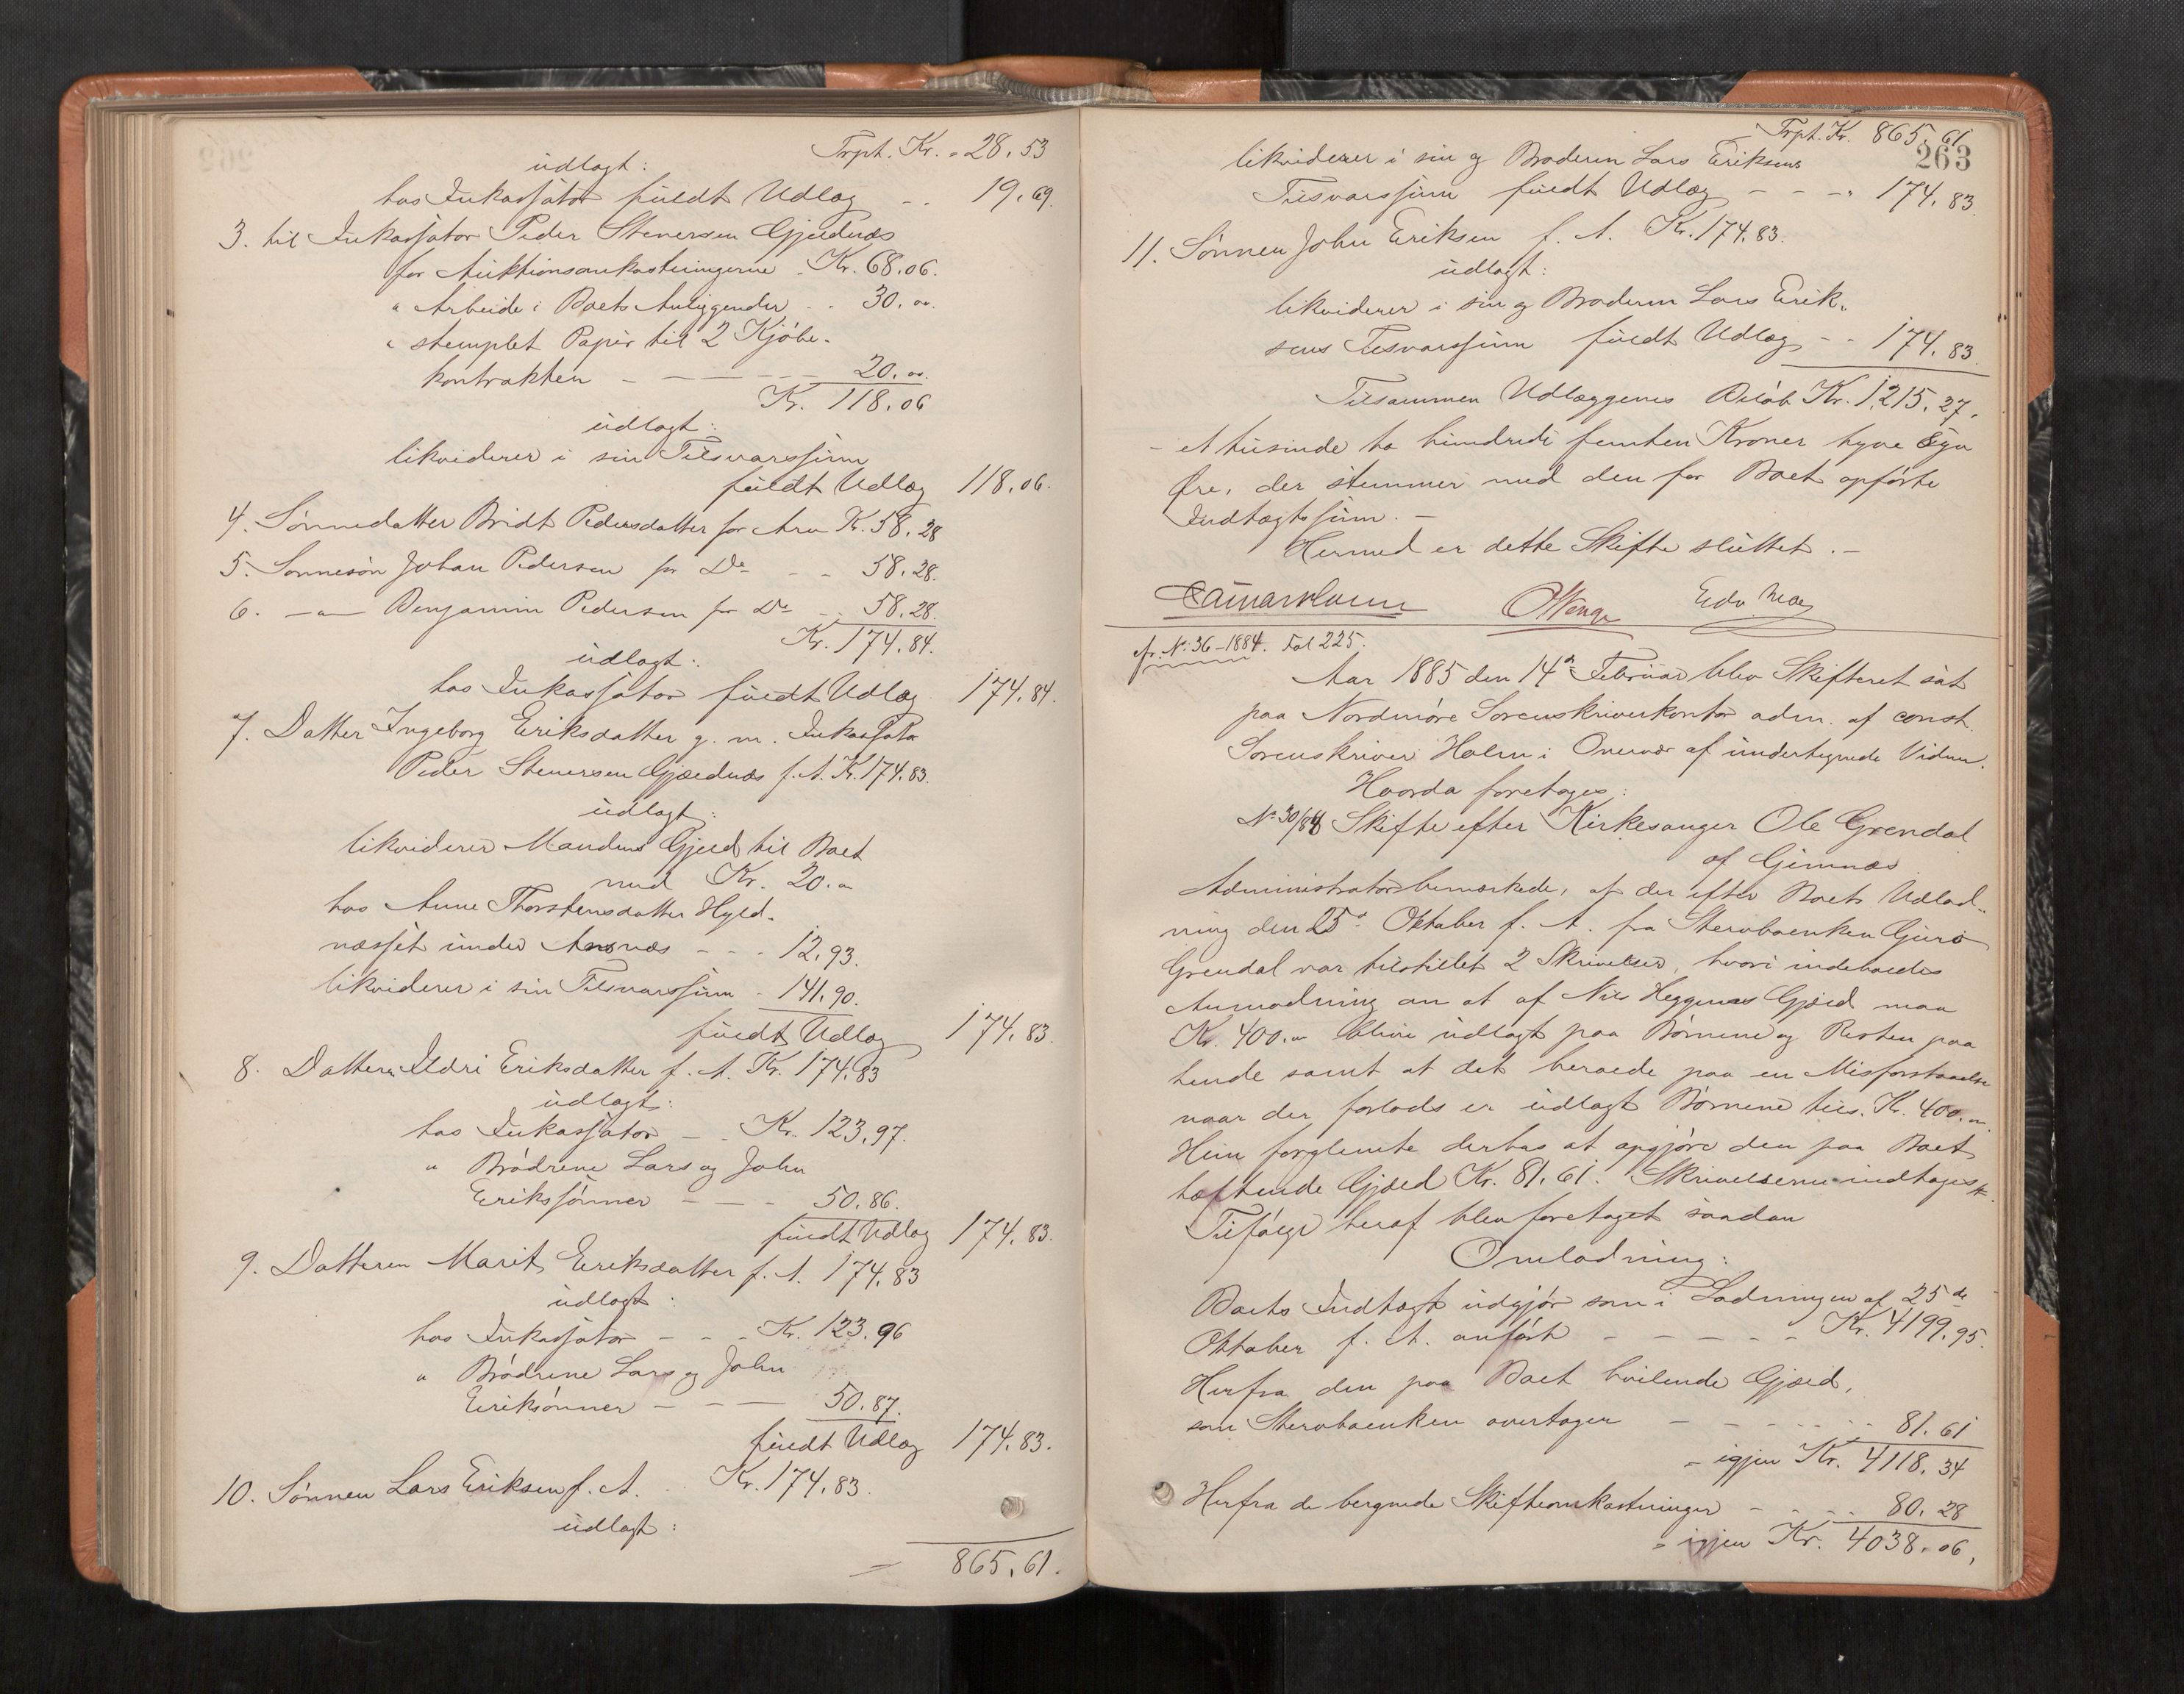 Trpt. Kr. - 28.53
udlagt:
hos Inkassator fuldt Udlæg - - 19.69.
3. til Inkassator Peder Stenersen Gjeldnæs
for Auktionsomkostningerne - Kr. 68.06.
" Arbeide i Boets Anliggender - - 30.00.
" stemplet Papir til 2 Kjöbe-
kontrakter - - - - 20.00.
Kr. 118.06
udlagt:
likviderer i sin Tilsvarssum
fuldt Udlæg 118.06.
4. Sønnedatter Bridt Pedersdatter for Arv Kr. 58.28
5. Sønnesøn Johan Pedersen for Do - - 58.28.
6. -"- Benjamin Pedersen for Do - - 58.28.
Kr. 174.84.
udlagt:
hos Inkassator fuldt Udlæg 174.84.
7. Datter Ingeborg Eriksdatter g. m. Inkassator
Peder Stenersen Gjeldnæs f. A. Kr. 174.83.
udlagt:
likviderer Mandens Gjeld til Boet
med Kr. 20.00
hos Anne Thorstensdatter Hyld-
næsset under Arsnæs - - - 12.93.
likviderer i sin Tilsvarssum - 141.90.
fuldt Udlæg 174.83.
8. Datteren Ildri Eriksdatter f. A. Kr. 174.83
udlagt:
hos Inkassator - - Kr. 123.97.
" Brødrene Lars og John
Erikssønner - - - 50.86.
fuldt Udlæg 174.83.
9. Datteren Marit Eriksdatter f. A. 174.83
udlagt:
hos Inkassator - - - Kr. 123.96
" Brødrene Lars og John
Eriksønner - - - 50.87.
fuldt Udlæg 174.83.
10. Sønnen Lars Eriksen f. A. Kr. 174.83.
udlagt:
= 865.61.
Trpt. Kr. 865.61
263
likviderer i sin og Broderen Lars Eriksens
Tilsvarssum fuldt Udlæg - - - 174.83.
11. Sønnen John Eriksen f. A. Kr. 174.83.
udlagt:
likviderer i sin og Broderen Lars Erik-
sens Tilsvarssum fuldt Udlæg - - 174.83.
Tilsammen Udlæggenes Beløb Kr. 1215.27.
- et tusinde to hundrede femten Kroner tyve Syv
Øre, der stemmer med den for Boet opførte
Indtægtssum. -
Hermed er dette Skifte sluttet. -
Edv Moe
fr. No. 36-1884. Fol 225.
Aar 1885 den 14de Februar blev Skifteret sat
paa Nordmøre Sorenskriverkontor adm. af const.
Sorenskriver Holm i Overvær af undertegnede Vidner.
Hvorda foretoges:
No 30/84 Skifte efter Kirkesanger Ole Grendal
af Gimnæs
Administrator bemærkede, at der efter Boets Udlod-
ning den 25de Oktober f. A. fra Stervboenken Guro
Grendal var tilstillet 2 Skrivelser, hvori indeholdes
Anmodning om at af Nils Heggenæs Gjeld maa
Kr. 400.00 blive udlagt paa Børnene og Resten paa
hende samt at det beroede paa en Misforstaaelse
naar der forlods er udlagt Børnene tils. Kr. 400.00.
Hun forglemte derhos at opgjøre den paa Boet
heftende Gjæld Kr. 81.61. Skrivelserne indtages #.
Tilfølge heraf blev foretaget saadan
Omlodning:
Boets Indtægt udgjør som i Lodningen af 25de
Oktober f. A. anført - - - - - Kr. 4199.95.
Herfra den paa Boet hvilende Gjæld,
som Stervboenken overtager - - - - - 81.61
- igjen Kr. 4118.34
Herfra de beregnede Skifteomkostninger - - - - 80.28
- igjen Kr. 4038.06.